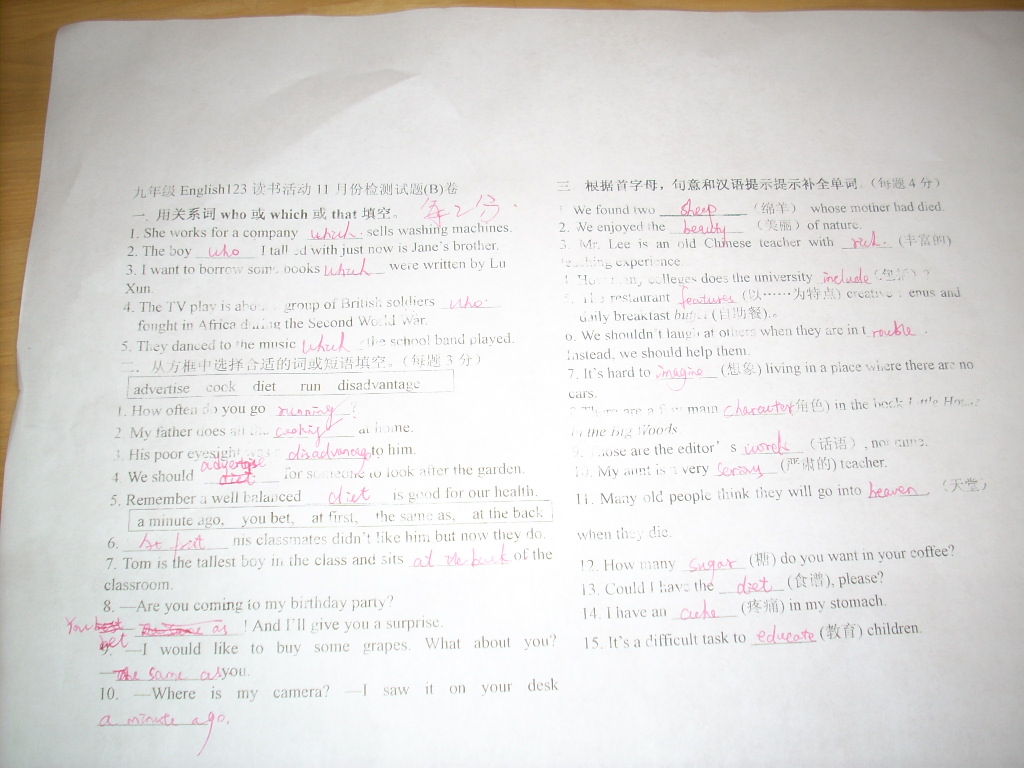 九年级 English123 读书活动 11 月份检测试题(B)卷
一. 用关系词 who 或 which 或 that 填空。 每2分.
1. She works for a company which. sells washing machines.
2. The boy who I talked with just now is Jane's brother.
3. I want to borrow some books which were written by Lu
Xun.
4. The TV play is group of British soldiers who.
fought in Africa during the Second World War.
5. They danced to the music which the school band played.
二. 从方框中选择合适的词或短语填空。(每题 3 分)
advertise cook diet run disadvantage
1. How often do you go running ?
2. My father does all the cooking at home.
3. His poor eyesight was to him.
4. We should advertise for someone to look after the garden.
5. Remember a well balanced diet is good for our health.
a minute ago, you bet, at first, the same as, at the back
6. At first his classmates didn't like him but now they do.
7. Tom is the tallest boy in the class and sits at the back of the
classroom.
8. —Are you coming to my birthday party?
You bet ! And I'll give you a surprise.
9. —I would like to buy some grapes. What about you?
—The same as you.
10. —Where is my camera? —I saw it on your desk
a minute ago.
三 根据首字母，句意和汉语提示提示补全单词.(每题 4 分)
1 We found two sheep (绵羊) whose mother had died.
2. We enjoyed the beauty (美丽) of nature.
3. Mr. Lee is an old Chinese teacher with rich. (丰富的)
teaching experience.
4. How many colleges does the university include (包括)?
5. This restaurant features (以……为特点) creative menus and
daily breakfast buffet (自助餐).
6. We shouldn't laugh at others when they are in trouble.
Instead, we should help them.
7. It's hard to imagine (想象) living in a place where there are no
cars.
8. There are a few main character (角色) in the book Little House
in the Big Woods.
9. Those are the editor's words (话语), not mine.
10. My aunt is a very (严肃的) teacher.
11. Many old people think they will go into heaven (天堂)
when they die.
12. How many sugar (糖) do you want in your coffee?
13. Could I have the diet (食谱), please?
14. I have an ache (疼痛) in my stomach.
15. It's a difficult task to educate (教育) children.